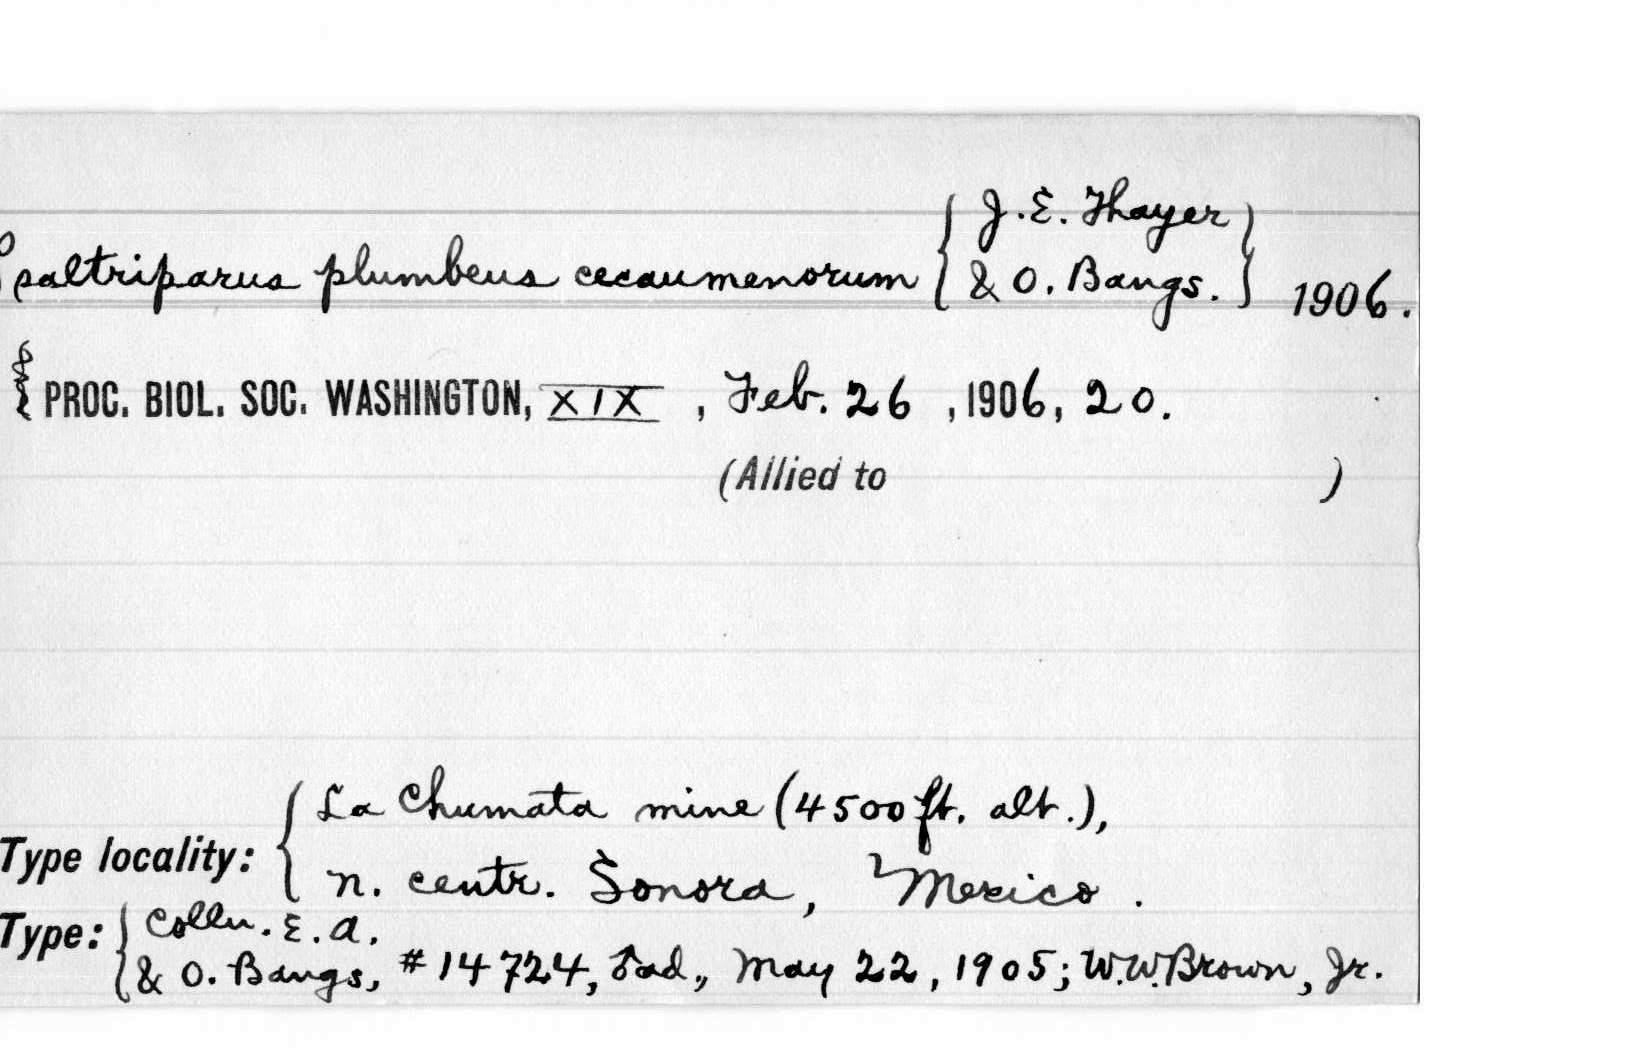 Psaltriparus plumbeus cecaumenorum { J. E. Thayer & O. Bangs. } 1906.
PROC. BIOL. SOC. WASHINGTON, XIX , Feb. 26 , 1906, 20.
(Allied to )
Type locality: { La Chumata mine (4500 ft. alt.),
n. centr. Sonora, Mexico .
Type: { Colln. E. A.
& O. Bangs, #14724, ♂ad., May 22, 1905; W.W. Brown, Jr.